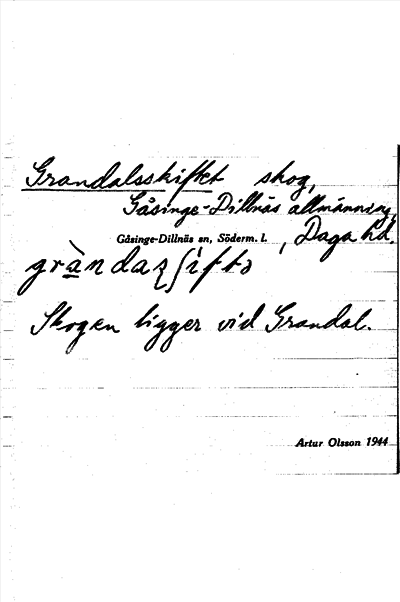 Grandalsskiftet skog,
Gåsinge-Dillnäs allmänning,
Gåsinge-Dillnäs sn, Söderm. l. , Daga hd.
gràndazʃiftə
Skogen ligger vid Grandal.
Artur Olsson 1944